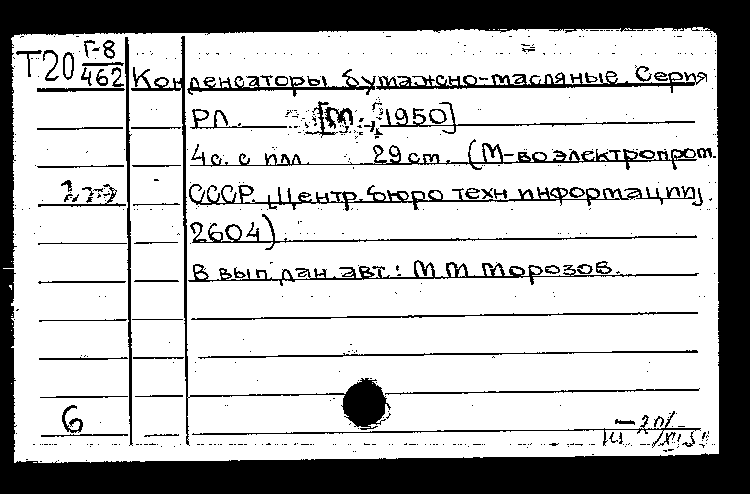 Т20 Г-8
462 Конденсаторы бумажно-масляные. Серия
РЛ. [М., 1950]
4 с. с илл. 29 см. (М-во электропром.
СССР. Центр. бюро техн. информации,
2604).
В вып. дан. авт.: М М Морозов.
6